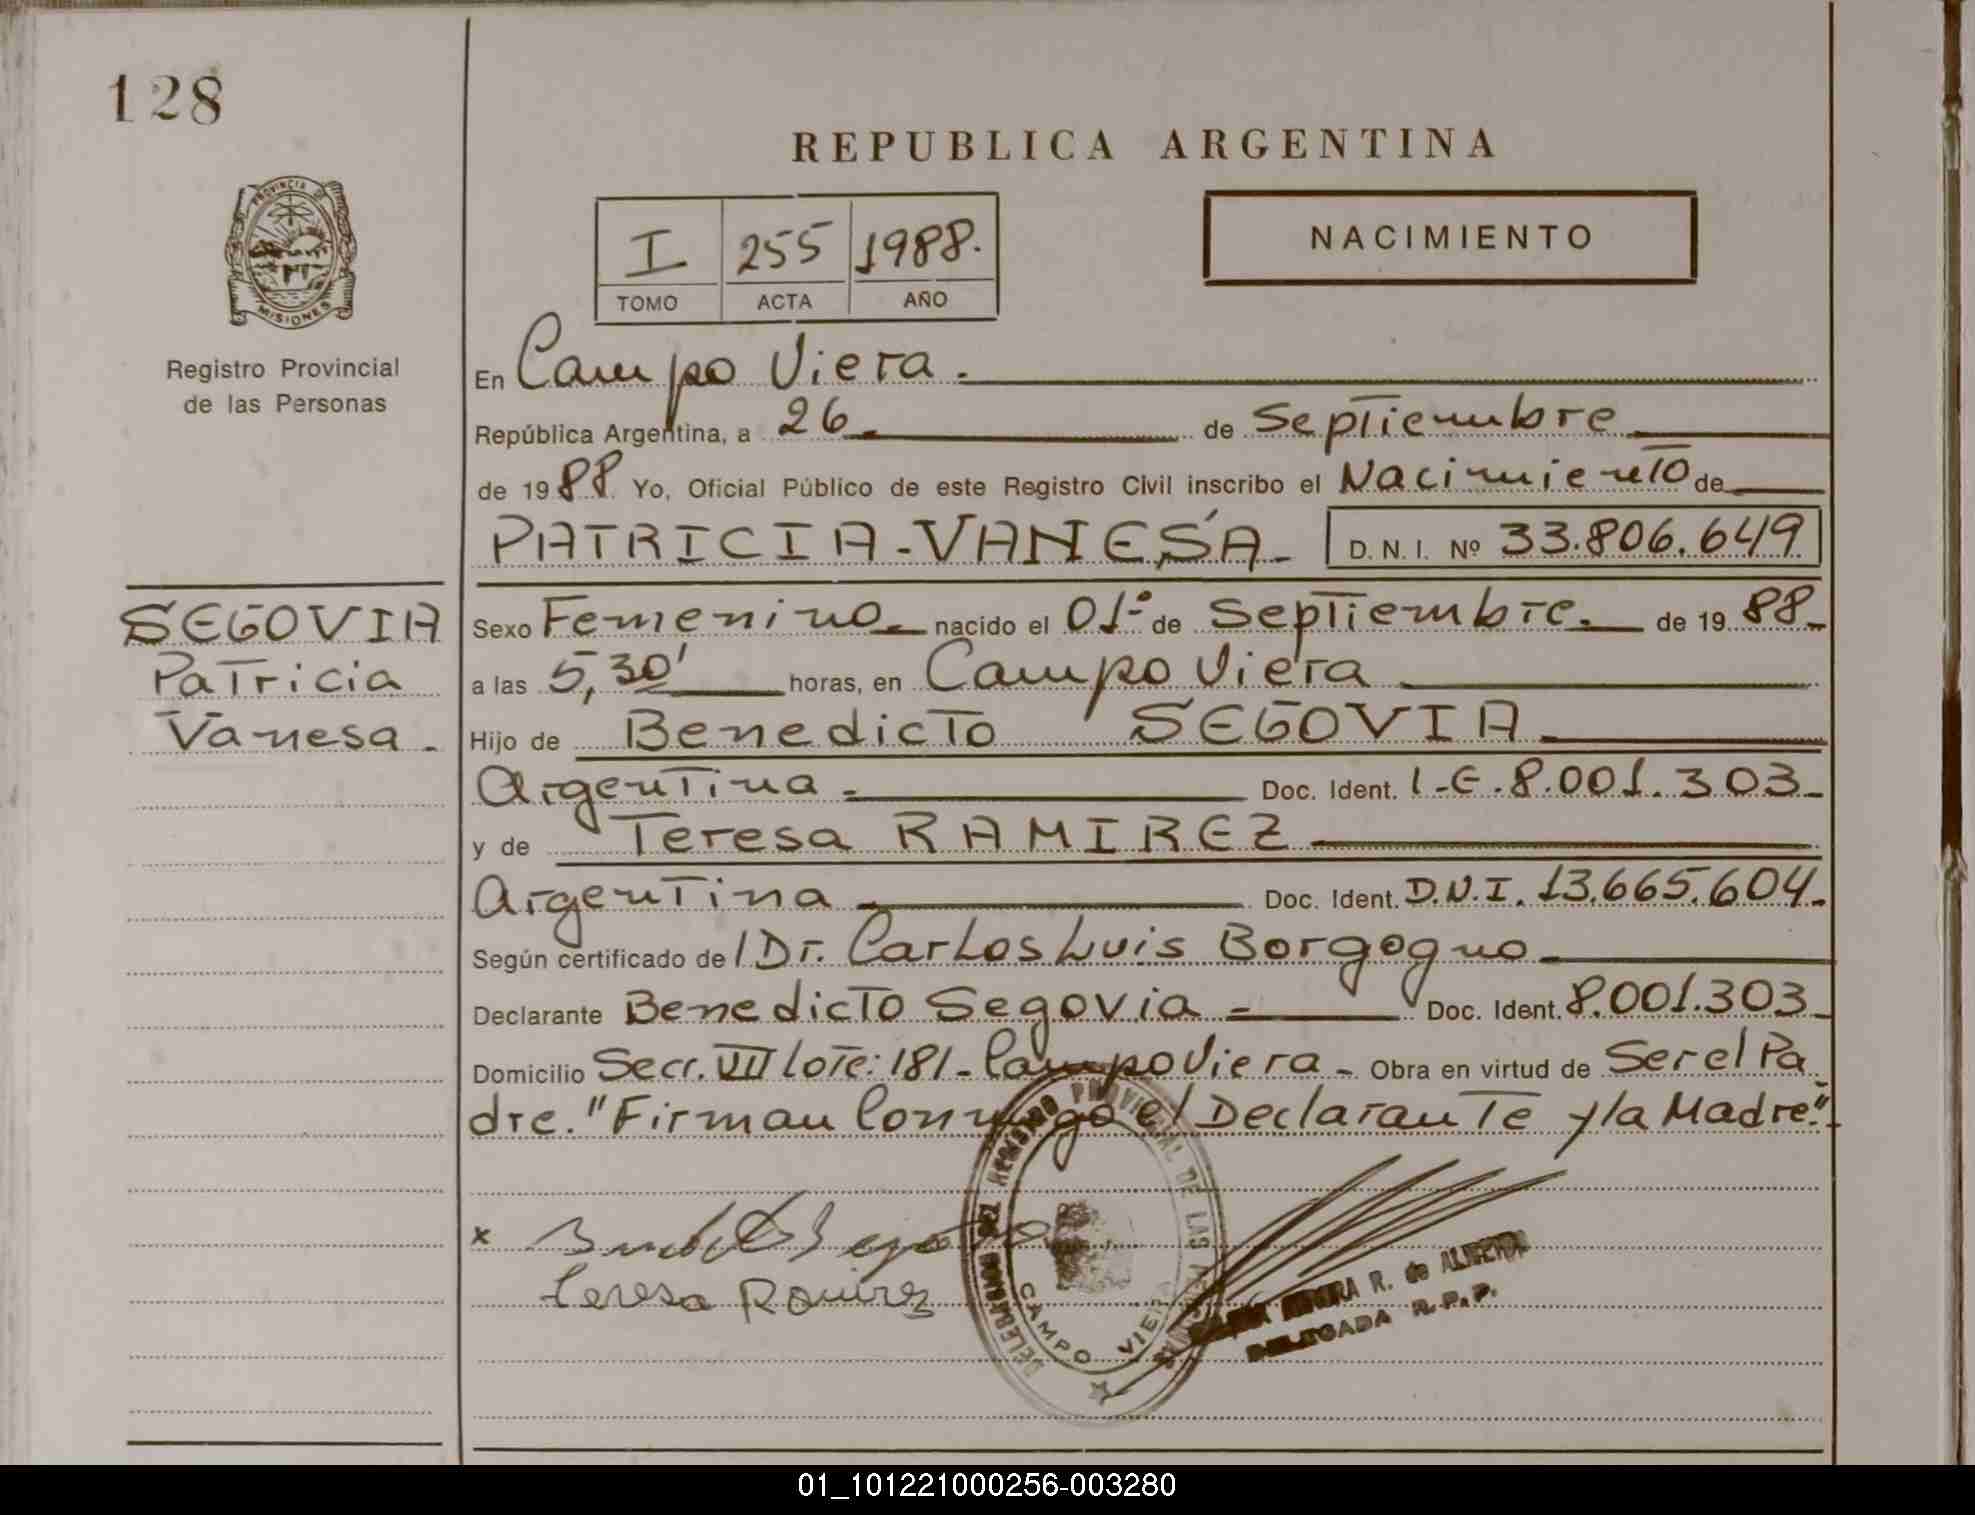 128
REPUBLICA ARGENTINA
PROVINCIA DE
MISIONES
Registro Provincial
de las Personas
I 255 1988.
TOMO ACTA AÑO
NACIMIENTO
En Campo Viera.
República Argentina, a 26 de Septiembre
de 1988 Yo, Oficial Público de este Registro Civil inscribo el Nacimiento de
PATRICIA-VANESA- D. N. I. Nº 33.806.649
SEGOVIA
Patricia
Vanesa.
Sexo Femenino nacido el 01º de Septiembre. de 19 88
a las 5,30' horas, en Campo Viera
Hijo de Benedicto SEGOVIA
Argentina Doc. Ident. L.E. 8.001.303
y de Teresa RAMIREZ
Argentina Doc. Ident. D.N.I. 13.665.604
Según certificado de l Dr. Carlos Luis Borgogno
Declarante Benedicto Segovia Doc. Ident. 8.001.303
Domicilio Secc. VIII lote: 181- Campo Viera - Obra en virtud de Ser el Pa
dre. "Firman Conmigo el Declarante y la Madre".
x
Teresa Ramirez
REGISTRO PROVINCIAL DE LAS
CAMPO VIERA
R. de
DELEGADA R.P.P.
01_101221000256-003280